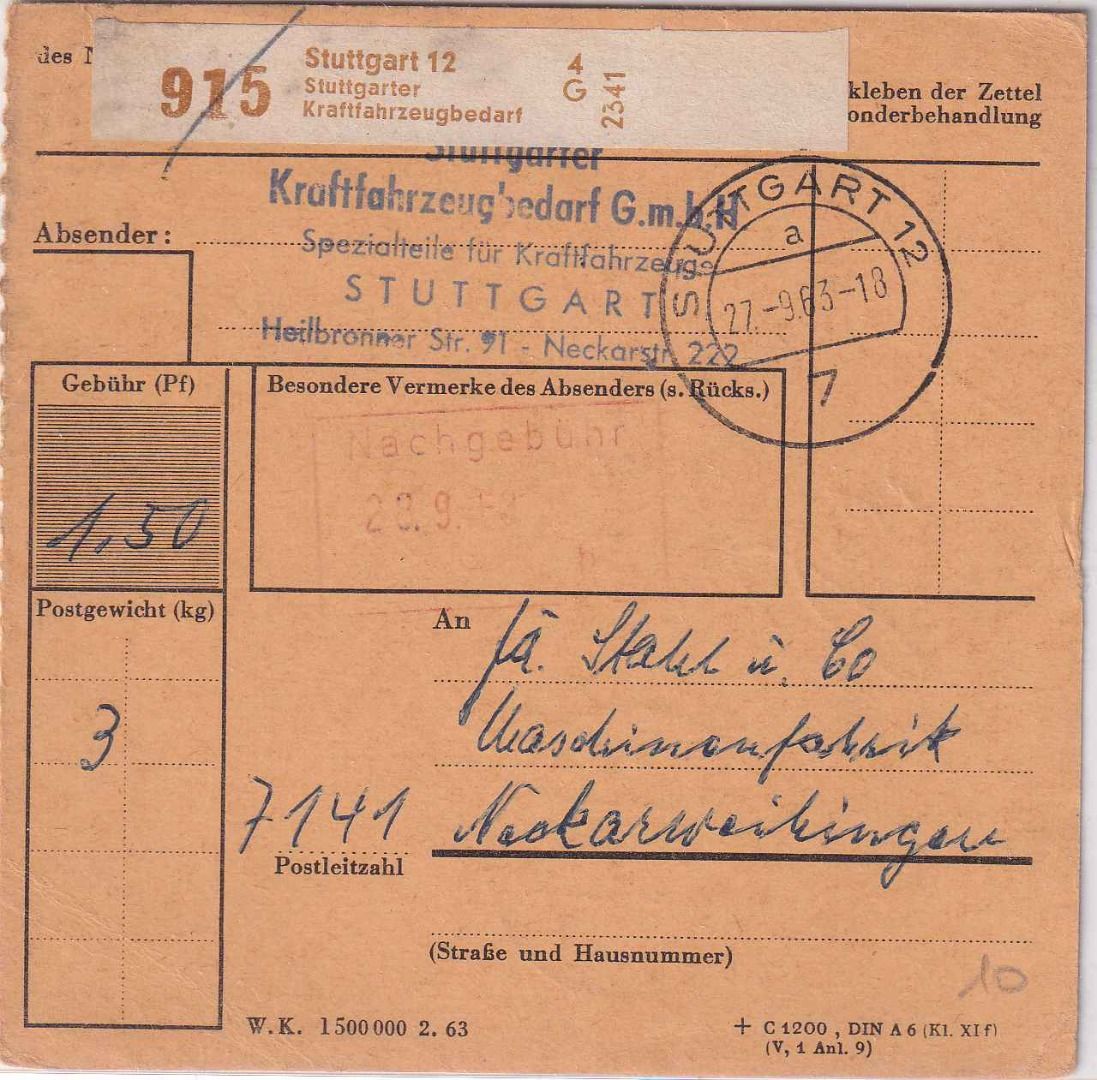 des
915
Stuttgart 12
Stuttgarter
Kraftfahrzeugbedarf
4
G
2341
kleben der Zettel
onderbehandlung
Stuttgarter
Kraftfahrzeugbedarf G.m.b.H
Absender:
Spezialteile für Kraftfahrzeuge
STUTTGART
Heilbronner Str. 91 - Neckarstr. 222
STUTTGART 12
a
27.-9.63-18
7
Gebühr (Pf)
1,50
Besondere Vermerke des Absenders (s. Rücks.)
Nachgebühr
28.9.
Postgewicht (kg)
3
An
Fa. Stahl u. Co
Maschinenfabrik
7141 Neckarweihingen
Postleitzahl
(Straße und Hausnummer)
10
W.K. 1500000 2. 63
+ C 1200, DIN A 6 (Kl. XI f)
(V, 1 Anl. 9)